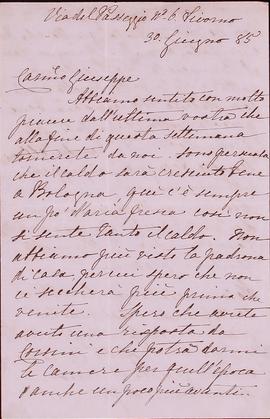 Via del Passeggio No 6. Livorno
30 Giugno 85
Carino Giuseppe
Abbiamo sentito con molto
piacere dall'ultima vostra che
alla fine di questa settimana
tornerete da noi. Sono persuata
che il caldo sarà cresciuto bene
a Bologna qui c'è sempre
un po' d'aria fresca così non
si sente tanto il caldo. Non
abbiamo più visto la padrona
di casa per cui spero che non
ci seccherà più prima che
venite. Spero che avrete
avuto una risposta da
Corsini e che potrà darmi
le camere per quell'epoca
o anche un poco più avanti.